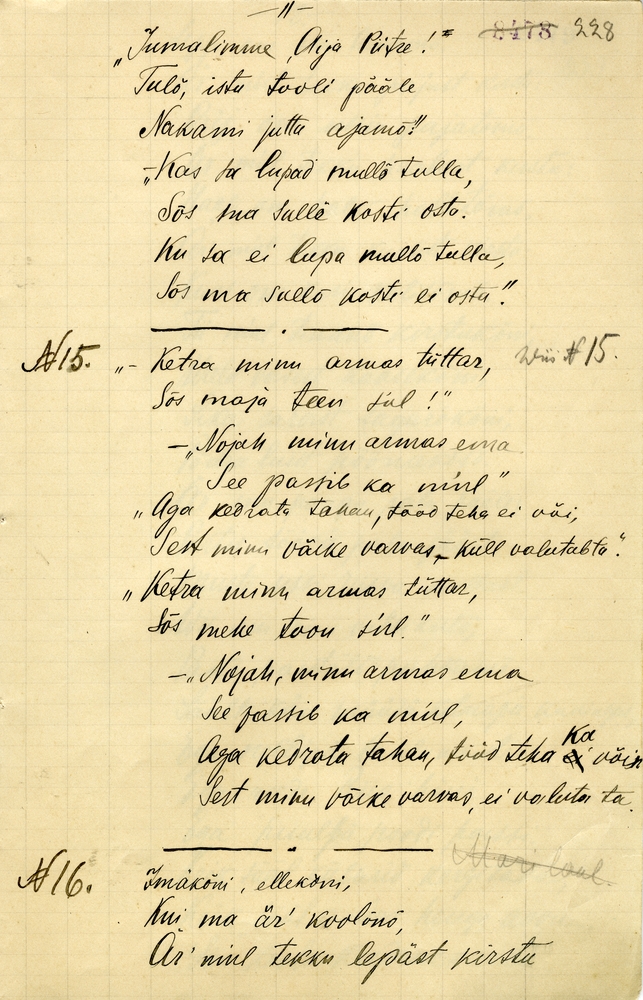 - 11 -
8478 228
„Jumalimme, Aija Piitre!"
Tulõ, istu tooli pääle
Nakami juttu ajamõ!"
-„Kas sa lupad mullõ tulla,
Sõs ma sullõ kosti osta.
Ku sa ei lupa mullõ tulla,
Sõs ma sullõ kosti ei osta".
N 15. „- Ketra minu armas tüttar, Wiis N 15.
Sõs maja teen siul!"
-„Nojah minu armas ema
See passib ka miul"
„Aga kedrata tahan, tööd teha ei või,
Sest minu väike varvas, - küll valutab ta".
„Ketra minu armas tüttar,
Sõs mehe toon siul."
-„Nojah, minu armas ema
See passib ka miul,
Aga kedrata tahan, tööd teha ka võin
Sest minu väike varvas, ei valuta ta.
Mari laul.
N 16. Imäkõni, ellekõni,
Kui ma är' koolõnõ,
Är' miul tekku lepäst kirstu